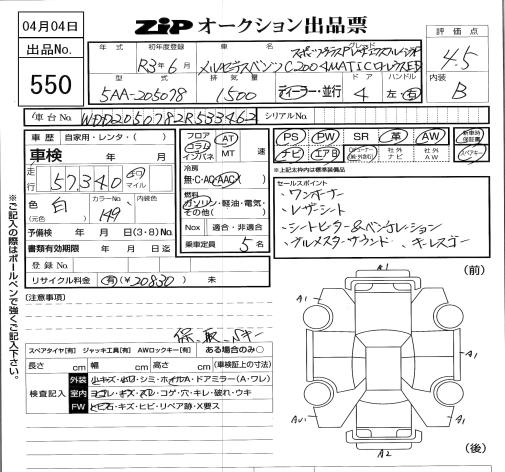 04月04日
ZIP オークション出品票
出品No.
550
評価点
4.5
内装
B
年式 初年度登録 車名 グレード
R3年6月 メルセデスベンツ C200 4MATIC
型式 排気量 ドア ハンドル
5AA-205078 1500 ディーラー・並行 4 左・右
車台No. シリアルNo.
車歴 自家用・レンタ・( )
車検 年 月
走行 57,340 マイル
色 白 カラーNo. 149 内装色
(元色)
予備検 年 月 日(3・8)No.
書類有効期限 年 月 日迄
登録No.
リサイクル料金 有(¥20830) 未
フロア コラム インパネ AT MT 速
冷房
無・C・AC・AAC
燃料
ガソリン・軽油・電気・その他( )
Nox 適合・非適合
乗車定員 5名
PS PW SR 革 AW 新車時保証書
ナビ エアB 社外ナビ 社外AW スペアキー
※上記太枠内は標準装備
セールスポイント
・ワンオーナー
・レザーシート
・シートヒーター&ベンチレーション
・ブルメスターサウンド ・キーレスゴー
※ご記入の際はボールペンで強くご記入下さい。
(注意事項)
保、取、Sキー
スペアタイヤ[有] ジャッキ工具[有] AWロックキー[有] ある場合のみ○
長さ cm 幅 cm 高さ cm (車検証上の寸法)
検査記入
外装 小キズ・小凹・シミ・ホイルA・ドアミラー(A・ワレ)
室内 ヨゴレ・キズ・スレ・コゲ・穴・キレ・破れ・ウキ
FW トビ石・キズ・ヒビ・リペア跡・X要ス
(前)
A1
A1
A1
A1
A1
A2
(後)